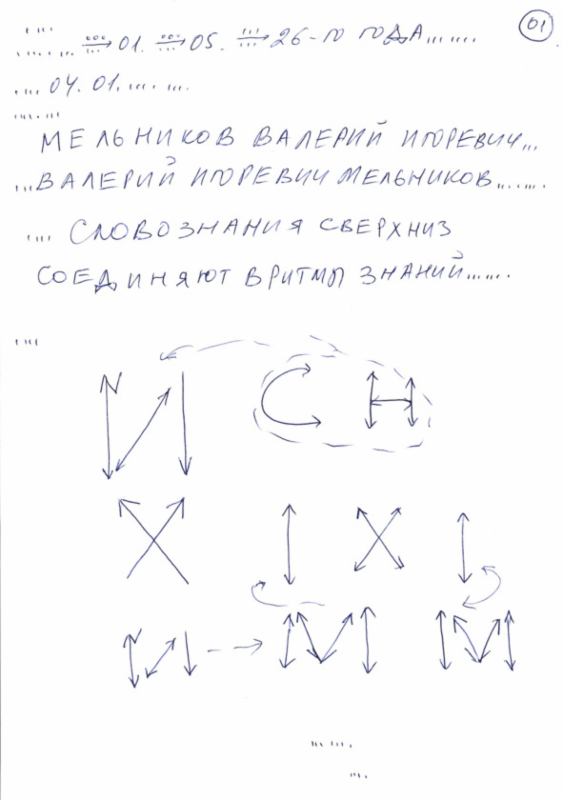 01
.... 01. 05. 26-ГО ГОДА.......
.... 04. 01. .... ...
МЕЛЬНИКОВ ВАЛЕРИЙ ИГОРЕВИЧ...
...ВАЛЕРИЙ ИГОРЕВИЧ МЕЛЬНИКОВ.......
.... СЛОВОЗНАНИЯ СВЕРХНИЗ
СОЕДИНЯЮТ В РИТМЫ ЗНАНИЙ.......
И С Н
Х I Х I
И М М